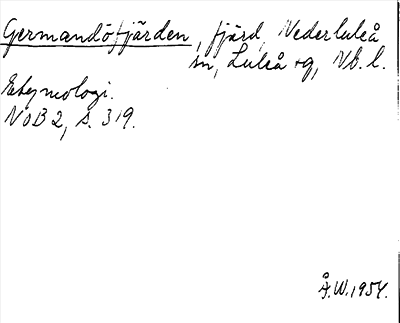 Germandöfjärden, fjärd, Nederluleå
sn, Luleå tg, Nb. l.
Etymologi.
NoB 2, s. 319.
Å.W. 1954.